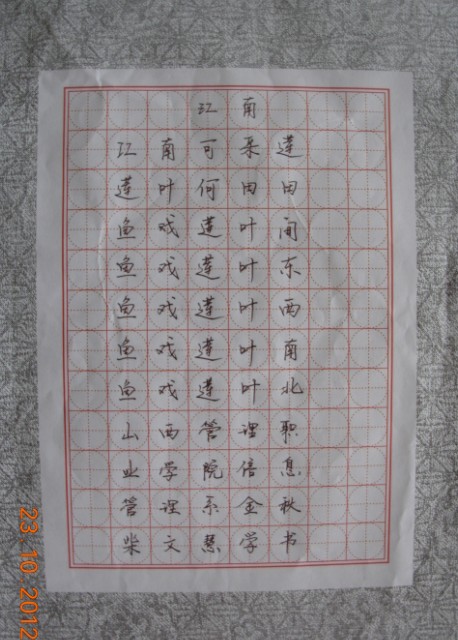 江南
江南可采莲
莲叶何田田
鱼戏莲叶间
鱼戏莲叶东
鱼戏莲叶西
鱼戏莲叶南
鱼戏莲叶北
山西管理职
业学院信息
管理系金秋
柴文慧学书
23.10.2012